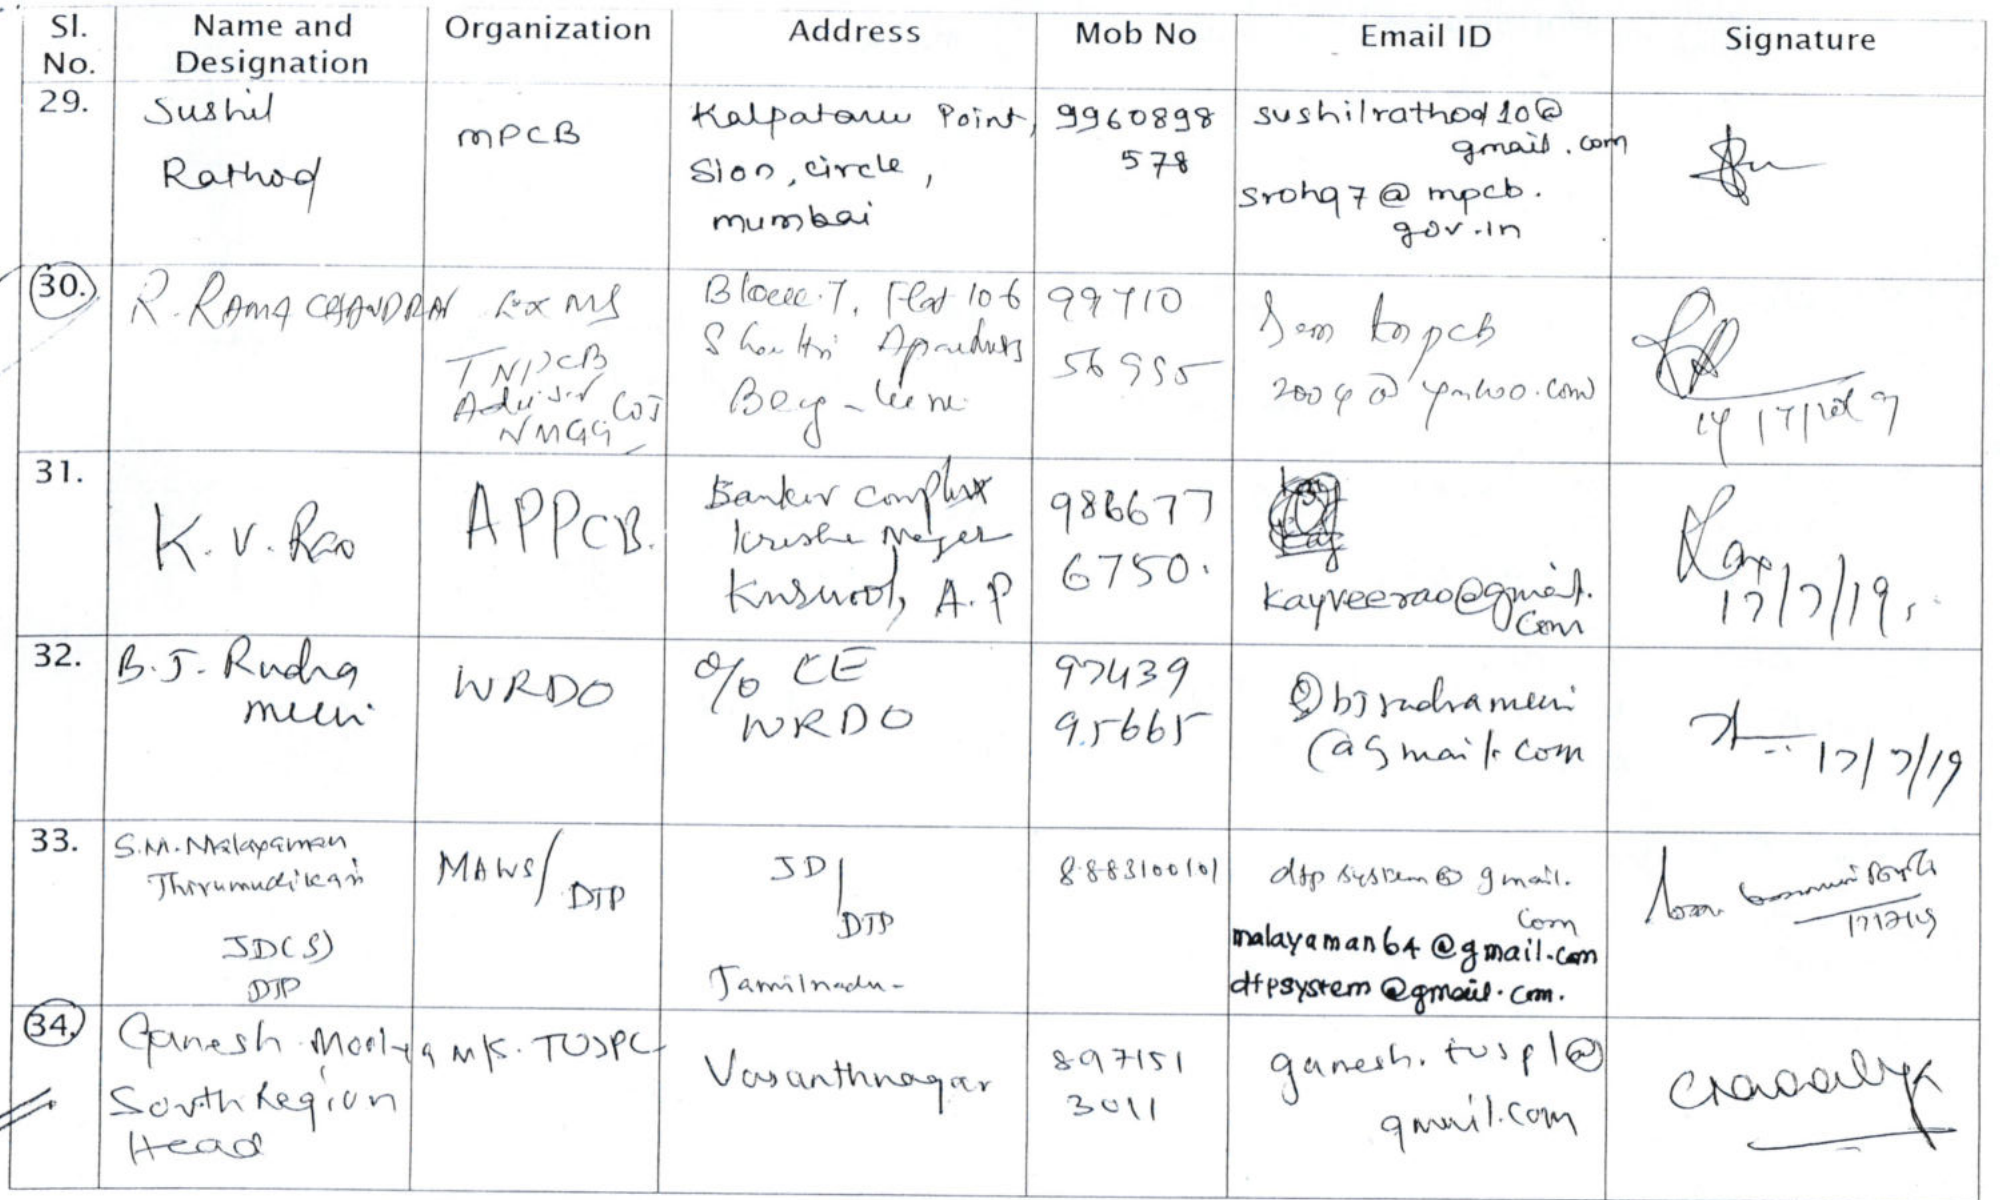 Sl. No. Name and Designation Organization Address Mob No Email ID Signature
29. Sushil Rathod MPCB Kalpataru Point, Sion, circle, mumbai 9960898 578 sushilrathod10@ gmail.com srohq7@mpcb. gov.in
30. R. RAMACHANDRAN Ex MS TNPCB Advisor NMGG Flat 106 99710 tnpcb 2004@yahoo.com
31. K. V. Rao APPCB. Banker Complex A.P 986677 6750. kayveerao@gmail. com 17/7/19.
32. B.J. Rudra muni WRDO O/o CE WRDO 97439 95665 bjrudramuni @gmail.com 17/7/19
33. S.M. Malayaman Thirumudikari JD(S) DTP MAWS/ DTP JD/ DTP Tamilnadu- 8883100101 dtpsystem@gmail. com malayaman64@gmail.com dtpsystem@gmail.com. 17/7/19
34. Ganesh Moolya South Region Head M/s. TUSPL Vasanthnagar 897151 3011 ganesh.tuspl@ gmail.com